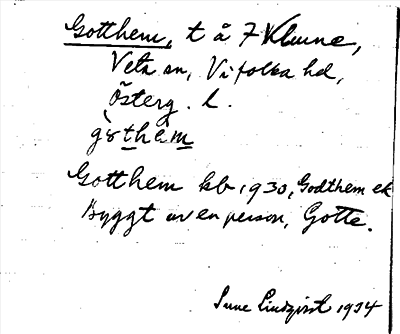 Gotthem, t å 7 Klunne,
Veta sn, Vifolka hd,
Österg. l.
gòthèm
Gotthem kb 1930, Godthem ek
Byggt av en person, Gotte.
Sune Lindqvist 1934